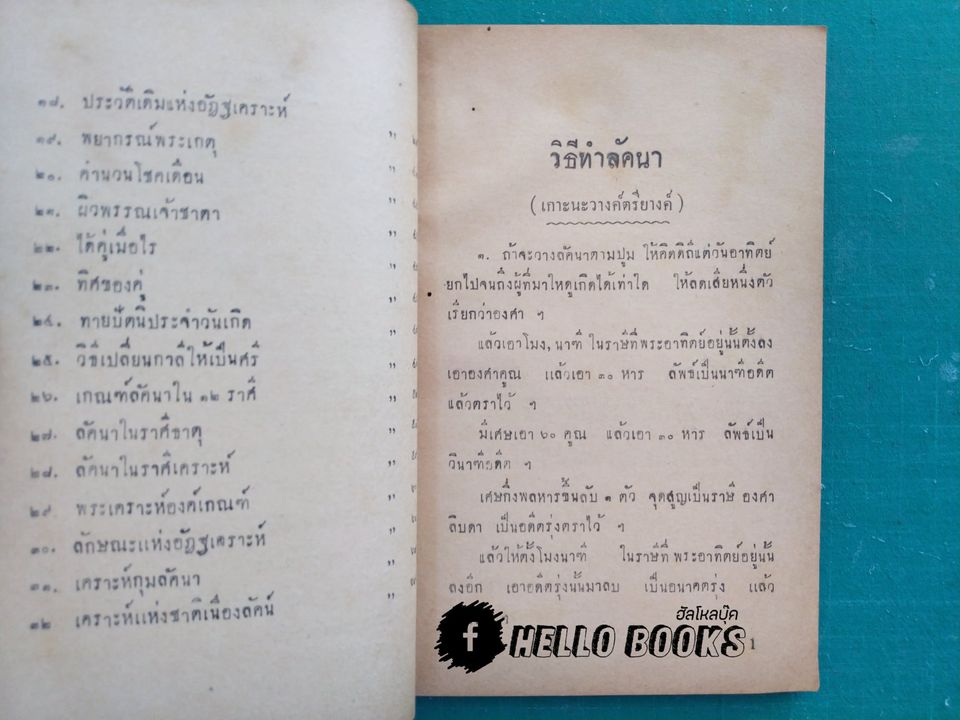 ๑๘. ประวัติเดิมแห่งอัฏฐเคราะห์
๑๙. พยากรณ์พระเกตุ "
๒๐. คำนวนโชคเดือน "
๒๑. ผิวพรรณเจ้าชาตา "
๒๒. ได้คู่เมื่อไร "
๒๓. ทิศของคู่ "
๒๔. ทายปัตนิประจำวันเกิด "
๒๕. วิธีเปลี่ยนกาลีให้เป็นศรี "
๒๖. เกณฑ์ลัคนาใน ๑๒ ราศี "
๒๗. ลัคนาในราศีธาตุ "
๒๘. ลัคนาในราศีเคราะห์ "
๒๙. พระเคราะห์องค์เกณฑ์ "
๓๐. ลักษณะแห่งอัฏฐเคราะห์ "
๓๑. เคราะห์กุมลัคนา "
๓๒. เคราะห์แห่งชาติเนื่องลัคน์ "
วิธีทำลัคนา
(เกาะนะวางค์ตรียางค์)
๑. ถ้าจะวางลัคนาตามปูม ให้คิดดิถีแต่วันอาทิตย์
ยกไปจนถึงผู้ที่มาใหดูเกิดได้เท่าใด ให้ลดเสียหนึ่งตัว
เรียกว่าองศา ฯ
แล้วเอาโมง, นาฑี ในราษีที่พระอาทิตย์อยู่นั้นตั้งลง
เอาองศาคูณ แล้วเอา ๓๐ หาร ลัพธ์เป็นนาฑีอดีต
แล้วตราไว้ ฯ
มีเศษเอา ๖๐ คูณ แล้วเอา ๓๐ หาร ลัพธ์เป็น
วินาฑีอดีต ฯ
เศษกึ่งพลหารขึ้นลับ ๑ ตัว จุดสูญเป็นราษี องศา
ลิบดา เป็นอดีตรุ่งตราไว้ ฯ
แล้วให้ตั้งโมงนาฑี ในราษีที่พระอาทิตย์อยู่นั้น
ลงอีก เอาอดีตรุ่งนั้นมาลบ เป็นอนาคตรุ่ง แล้ว
ฮัลโหลบุ๊ค
f HELLO BOOKS
1